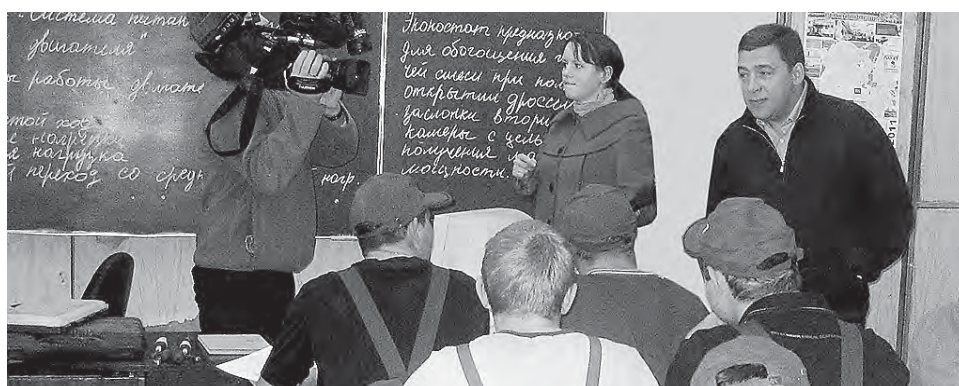 "Система питан
двигателя"
ы работы двигате
стой ход
нагрузка
я нагрузка
й переход со средн нагр.
Эконостат предназнач
для обогощения г
чей смеси при пол
открытии дроссе
заслонки втори
камеры с цель
получения ма
мощности.
2011